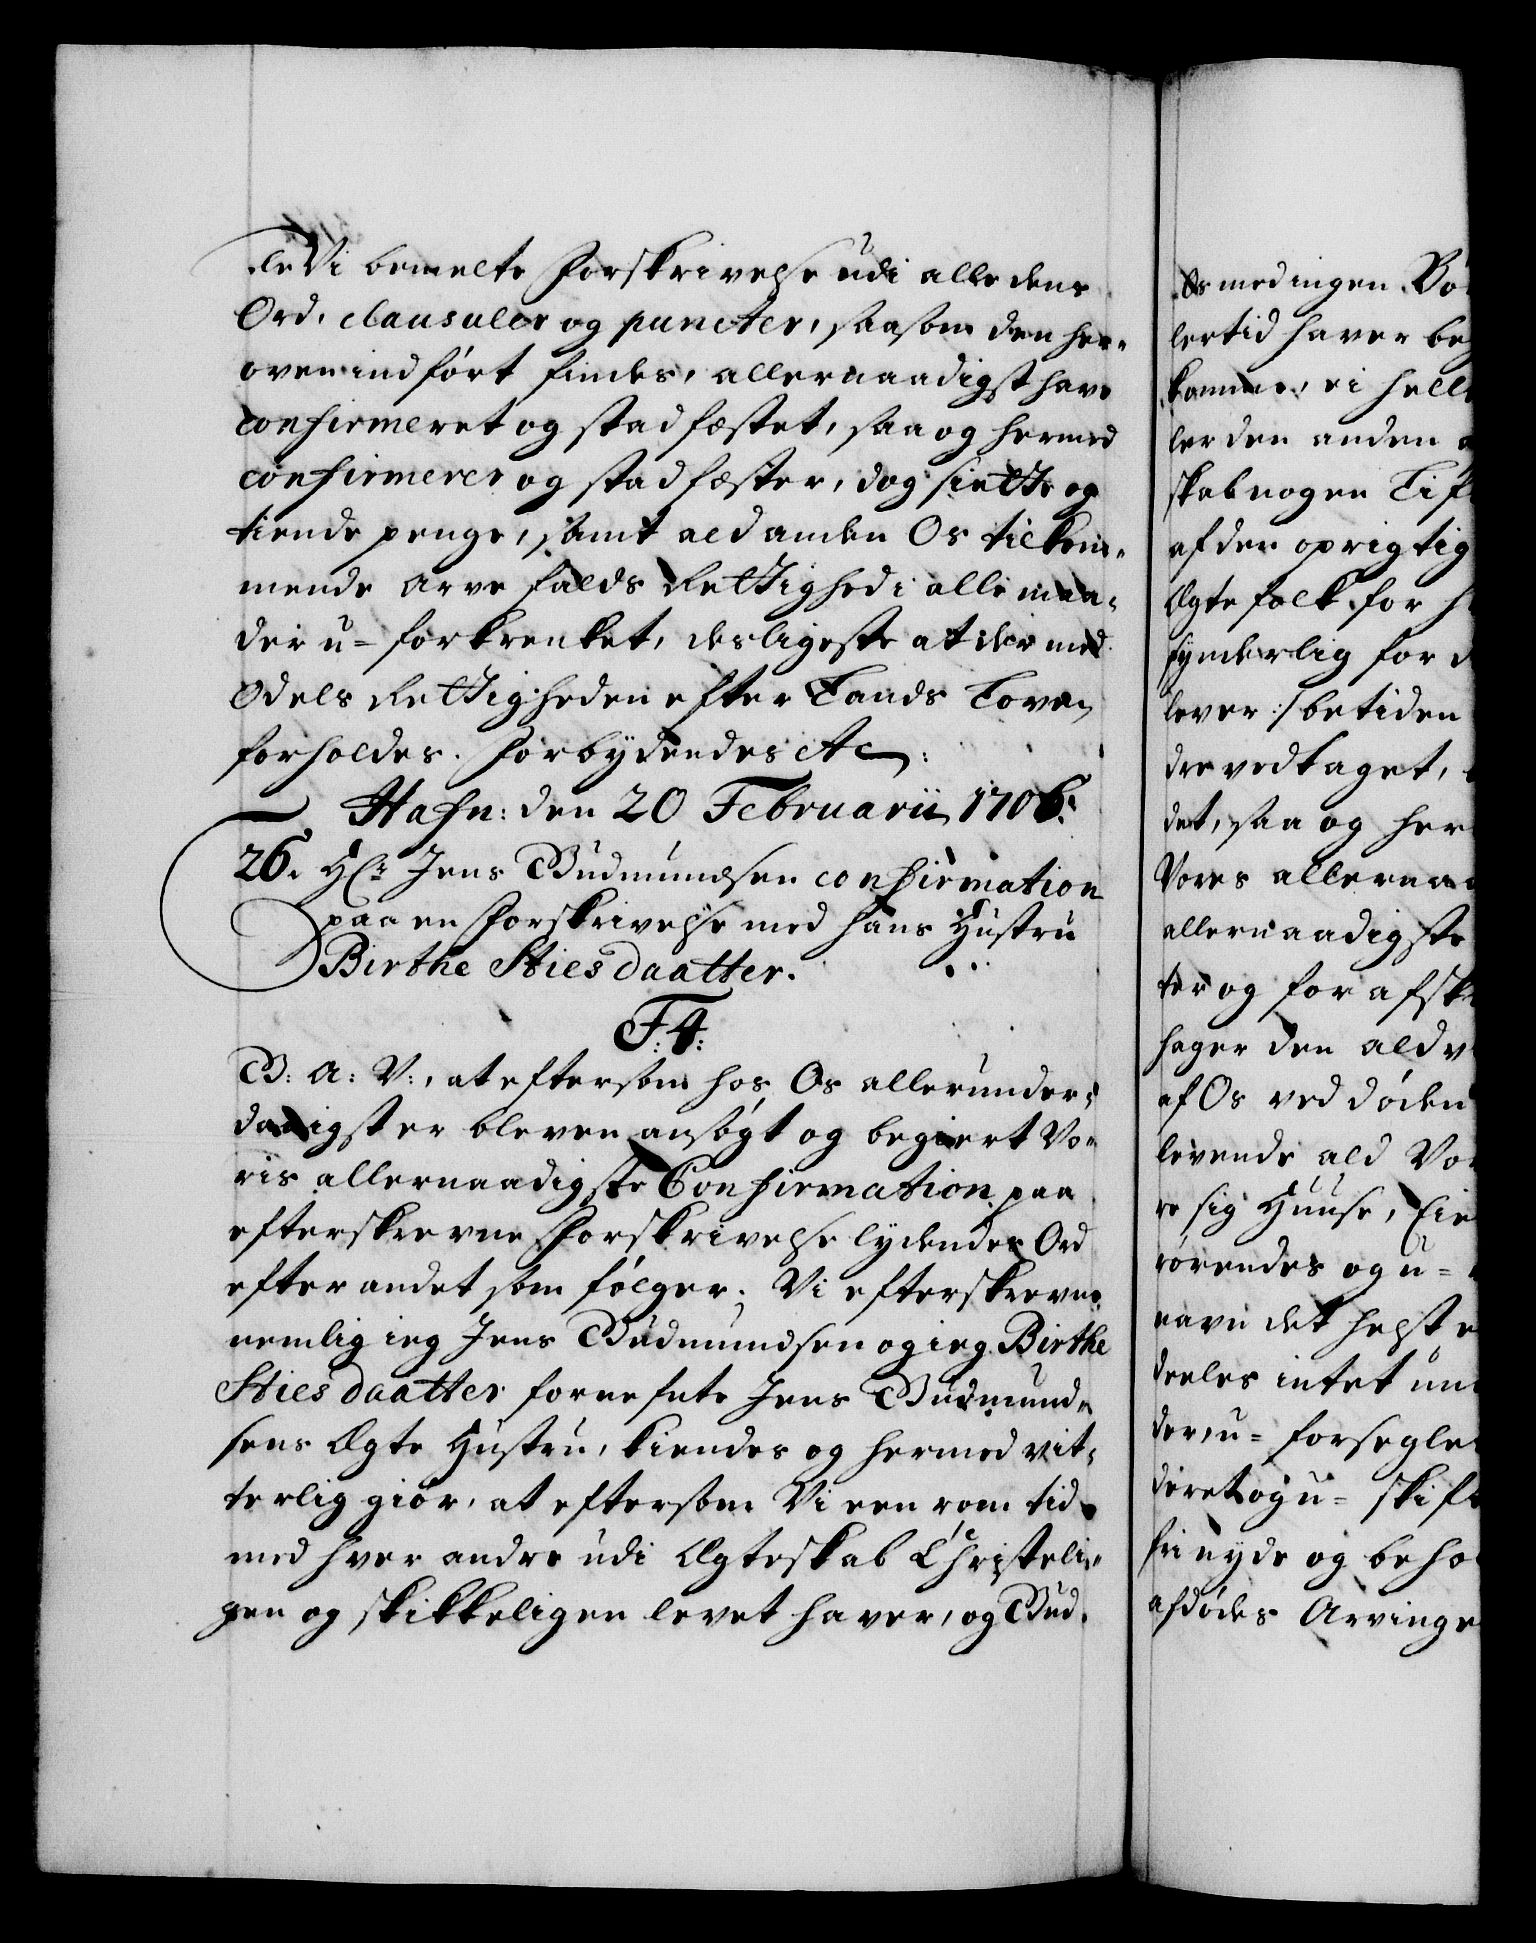 le Vi bemelte Forskrivelse udi alle dens
Ord, clausuler og puncter, saasom den her-
oven indført findes, allernaadigst have
confirmeret og stadfæstet, saa og hermed
confirmerer og stadfæster, dog siette og
tiende penge, samt ald anden Os tilkom-
mende Arvefalds Rettighed i alle maa-
der u-forkrenket, desligeste at der med
Odels Rettigheden efter Lands Loven
forholdes. Forbydendes etc:
Hafn: den 20 Februarii 1706.
26. Hr: Jens Gudmundsen confirmation
paa en Forskrivelse med hans Hustru
Birthe Stiesdaatter.
F: 4:
G: A: V:, at eftersom hos Os allerunder-
daanigst er bleven ansøgt og begiert Vo-
ris allernaadigste Confirmation paa
efterskrevne Forskrivelse lydendes Ord
efter andet som følger. Vi efterskrevne
nemlig ieg Jens Gudmundsen og ieg Birthe
Stiesdaatter fornefnte Jens Gudmund-
sens Ægte Hustru, kiendes og hermed vit-
terlig giør, at eftersom Vi een rom tid
med hver andre udi Ægteskab Christeli-
gen og skikkeligen levet haver, og Gud
Os med ingen
lertid haver
komme, ei
ler den anden
skab nogen
af den oprigtig
Ægtefolk for
synderlig for
lever :/ betiden
dre vedtaget,
det, saa og her
Vores
allernaadigste
ter og for
hager den ald
af Os ved døden
levende ald
re sig Huuse,
rørendes og u-
navn det helst
deeles intet
der, u-
deret og u-
fri nyde og
afdødes Arvinge